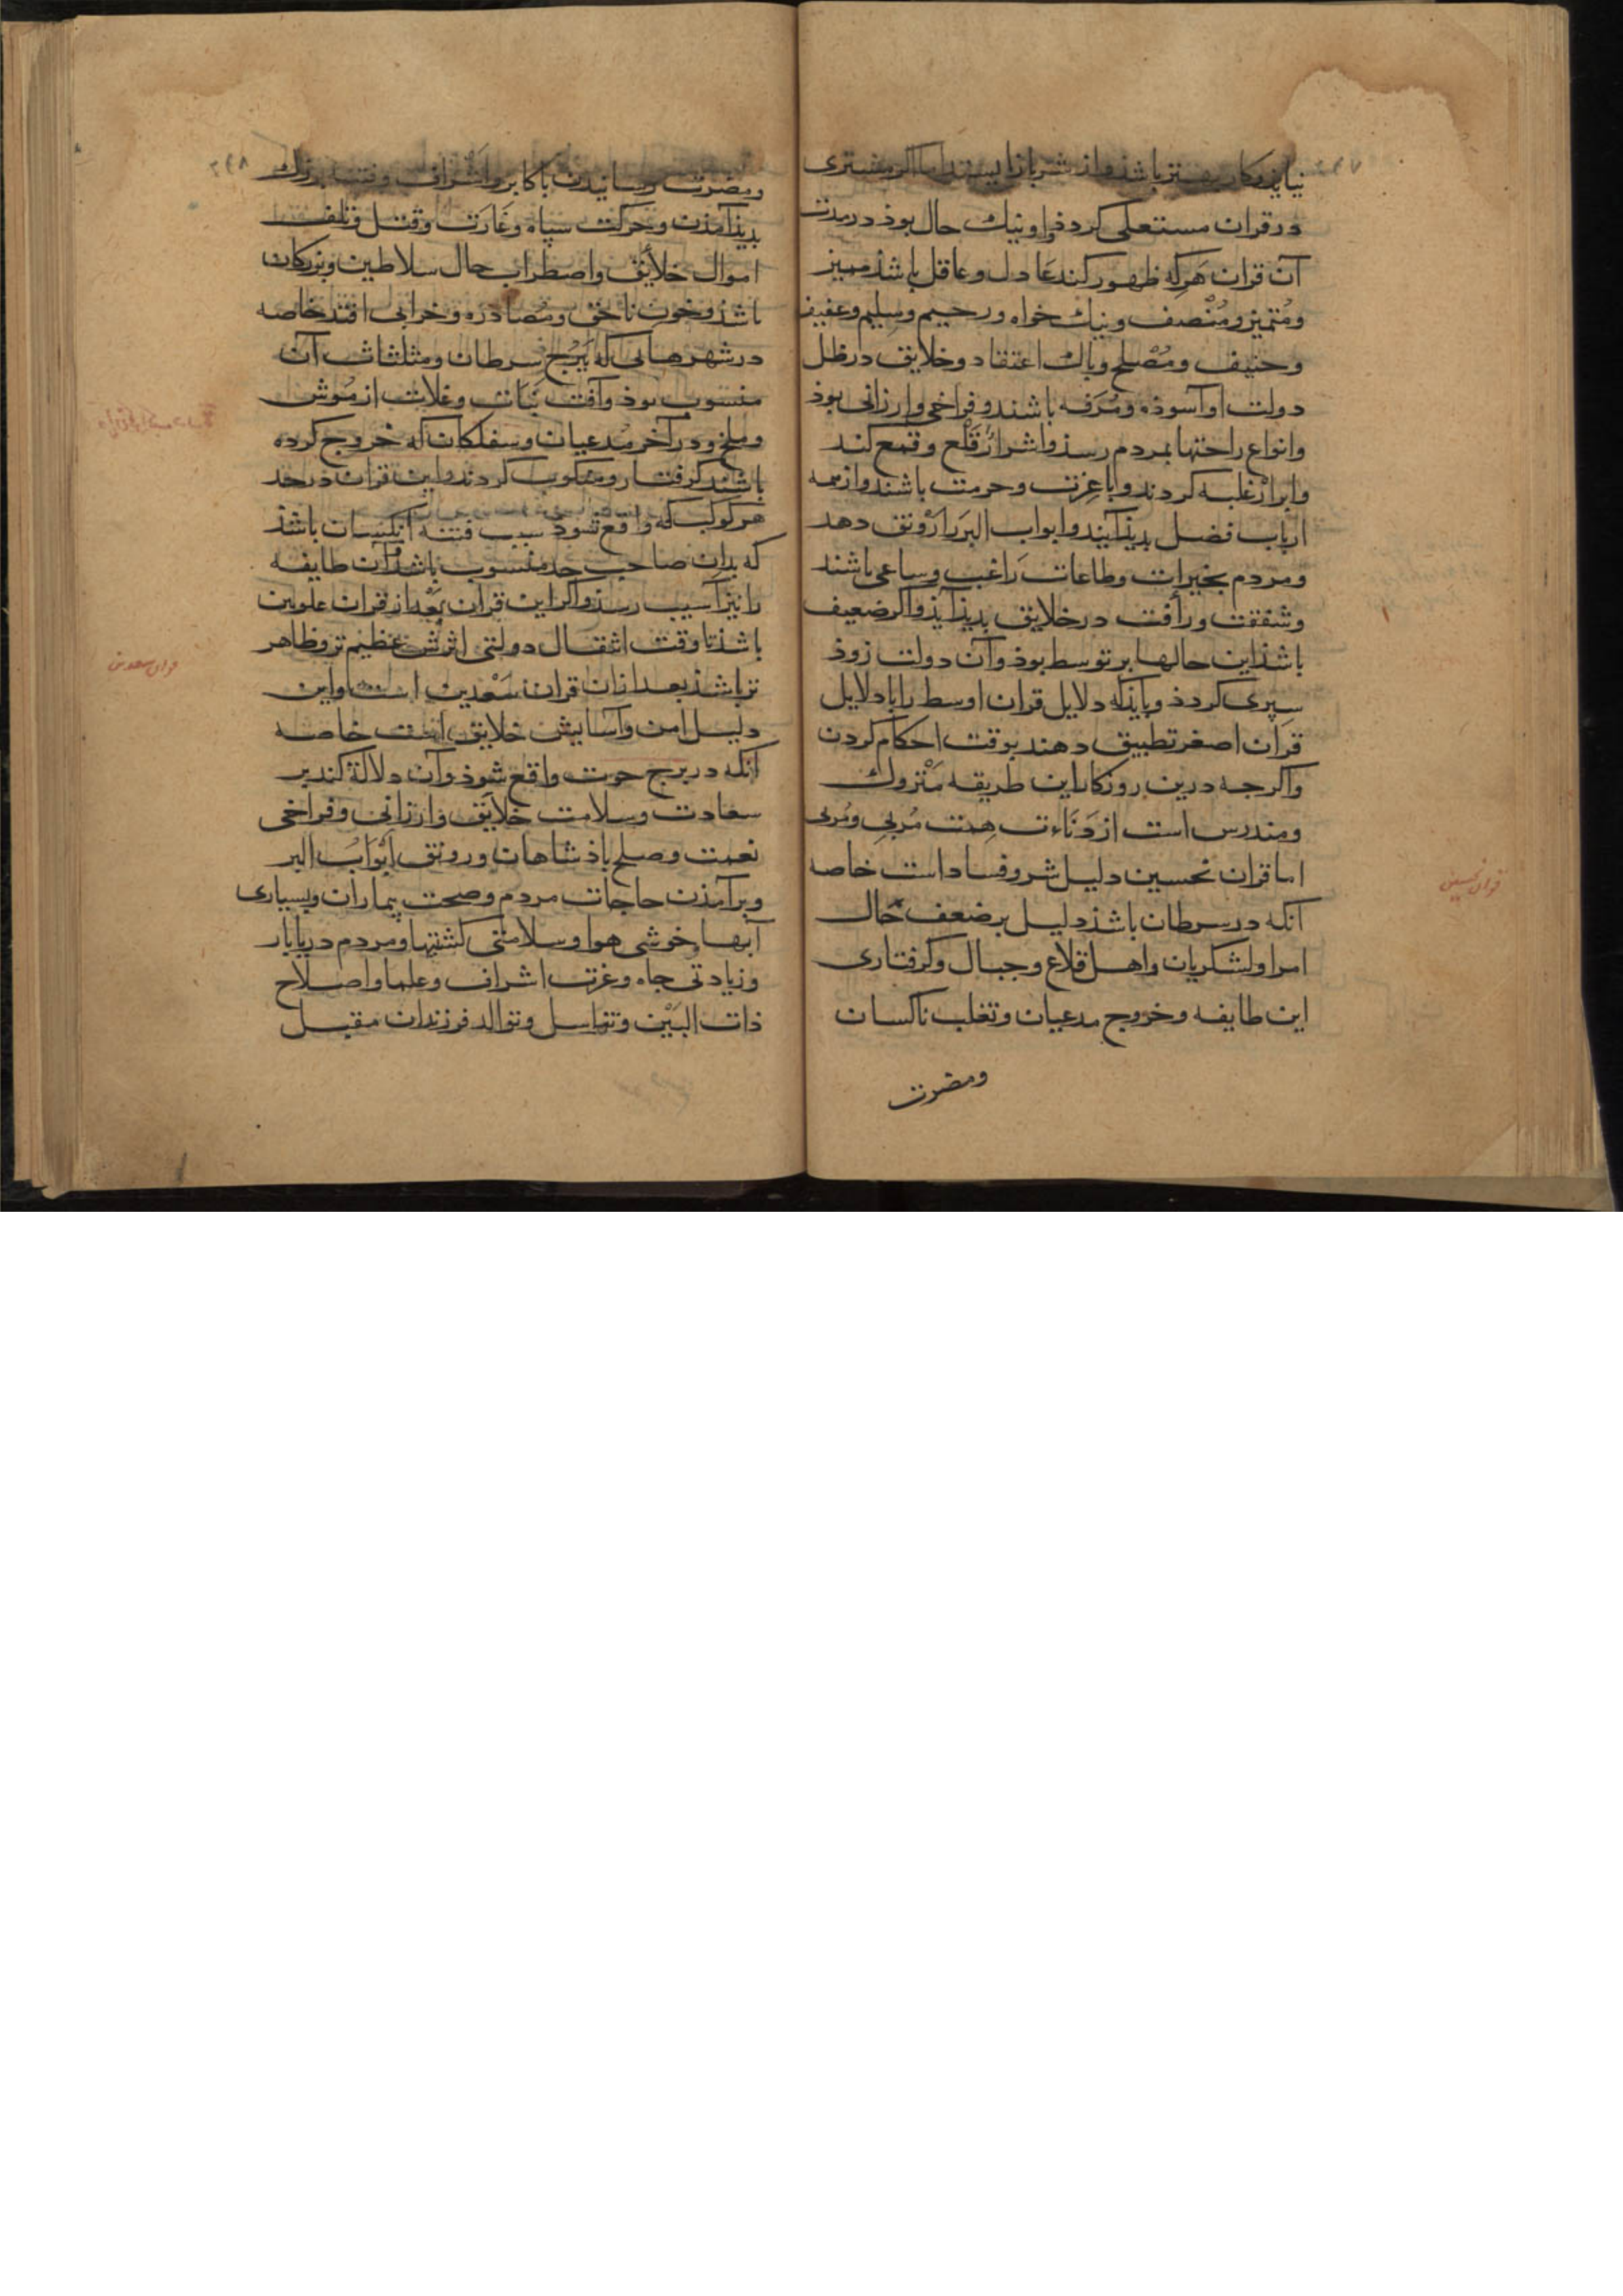 نیاید و کار بهتر باشد و از شر باز ایستد اما اکر مشتری
در قران مستعلی کردذ و او نیك حال بوذ در مدت
آن قران هَرکه ظهور کند عَادل و عاقل باشذ ممیز
و مُتمیز و مُنْصف و نیك خواه و رحیم و سلیم و عفیف
و حنیف و مُصْلح و باك اعتقاد و خلایق در ظل
دولت او آسوذه و مُرَفه باشند و فراخی و ارزانی بوذ
و انواع راحتها بمردم رسذ و اشرار قَلْع و قمع کند
و ابرار غلبه کردند و با عِزت و حرمت باشند و از همه
ارباب فضل بدیذ آیند و ابواب البر را رَوْنق دهد
و مردم بخیرات و طاعات رَاغب و ساعی باشند
و شفقت و رأفت در خلایق بدیذ آیذ و اکر ضعیف
باشذ این حالها بر توسط بوذ و آن دولت زوذ
سِپری کردذ و بایذ که دلایل قران اوسط را با دلایل
قران اصغر تطبیق دهند بوقت احکام کردن
و اکرجه درین روزکار این طریقه مَتْروك
و مندرس است از دَنَاءت هِمت مُربی و مُربی
اما قران نحسین دلیل شر و فساد است خاصه
آنکه در سرطان باشذ دلیل بر ضعف حَال
امرا و لشکریان و اهل قلاع و جبال و کرفتاری
این طایفه و خروج مدعیان و تغلب ناکسان
و مضرت
قران نحسین
٢٤٨
و مضرت رسانیدن باکابر و اَشْراف و فتنها بزرك
بدیذ آمذن و حرکت سپاه و غَارَت و قتل و تلف
اموال خلایق و اضطراب حال سلاطین و بزرکان
باشذ و خون ناحق و مُصادره و خرابی افتد خاصه
در شهرهائی که بَبُرْج سرطان و مثلثات آن
منسوب بوذ و آفت نَبَات و غلات از مُوش
و ملخ و در آخر مُدعیان و سفلکان که خروج کرده
باشند کرفتار و منکوب کردند و این قران در حد
هر کوکب که واقع شود سبب فتنه آنکسان باشذ
که بدان صاحب حد منسوب باشذ و آن طایفه
را نیز آسیب رسذ و اکر این قران بَعْد از قران علویین
باشذ تا وقت انتقال دولتی اثرش عظیم تر و ظاهر
تر باشذ بعد از آن قران سَعْدین است و این
دلیل امن و آسایش خلایق است خاصه
آنکه در برج حوت واقع شوذ و آن دلالة کند بر
سعادت و سلامت خلایق و ارزانی و فراخی
نعمت و صلح باذشاهان و رونق اَبْوَابُ البر
و برآمذن حاجات مردم و صحت بیماران و بسیاری
آبها و خوشی هوا و سلامتی کشتیها و مردم دریابار
و زیادتی جاه و عزت اشراف و علما و اصلاح
ذات البَیْن و تناسل و توالد فرزندان مقبل
قران سعدین